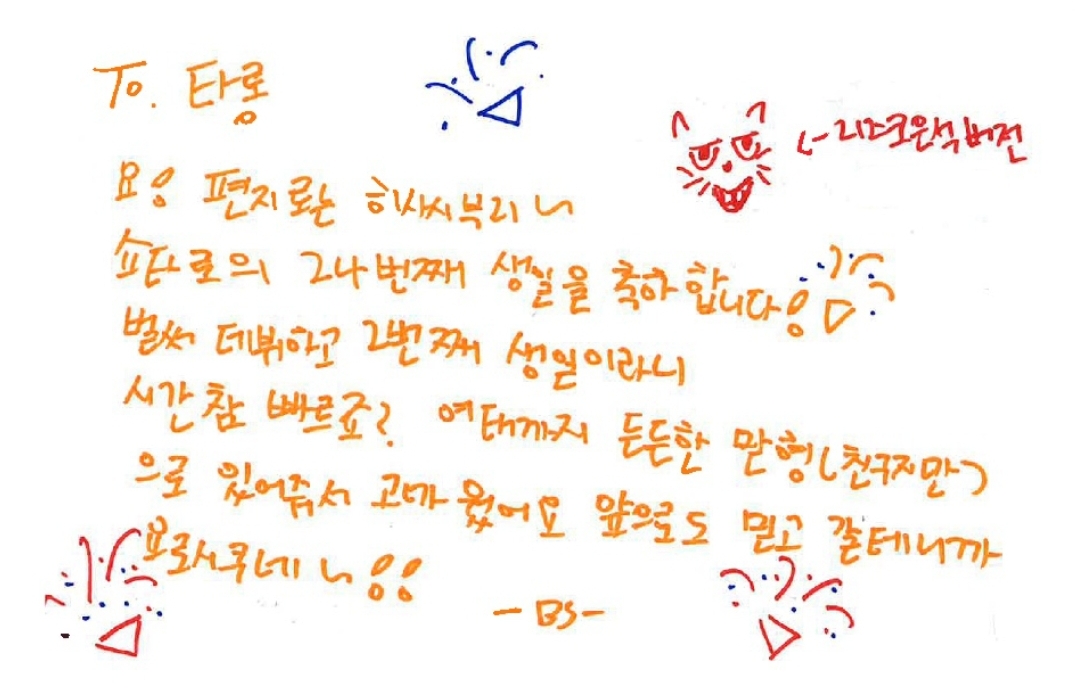 To. 타롱
← 리즈크은석버전
요! 편지로는 히사시부리~
쇼타로의 그나번째 생일을 축하합니다!
벌써 데뷔하고 2번째 생일이라니
시간 참 빠르죠? 여태까지 든든한 맏형(친구지만)
으로 있어줘서 고마웠어요 앞으로도 믿고 갈테니까
요로시쿠네~!!
-BS-